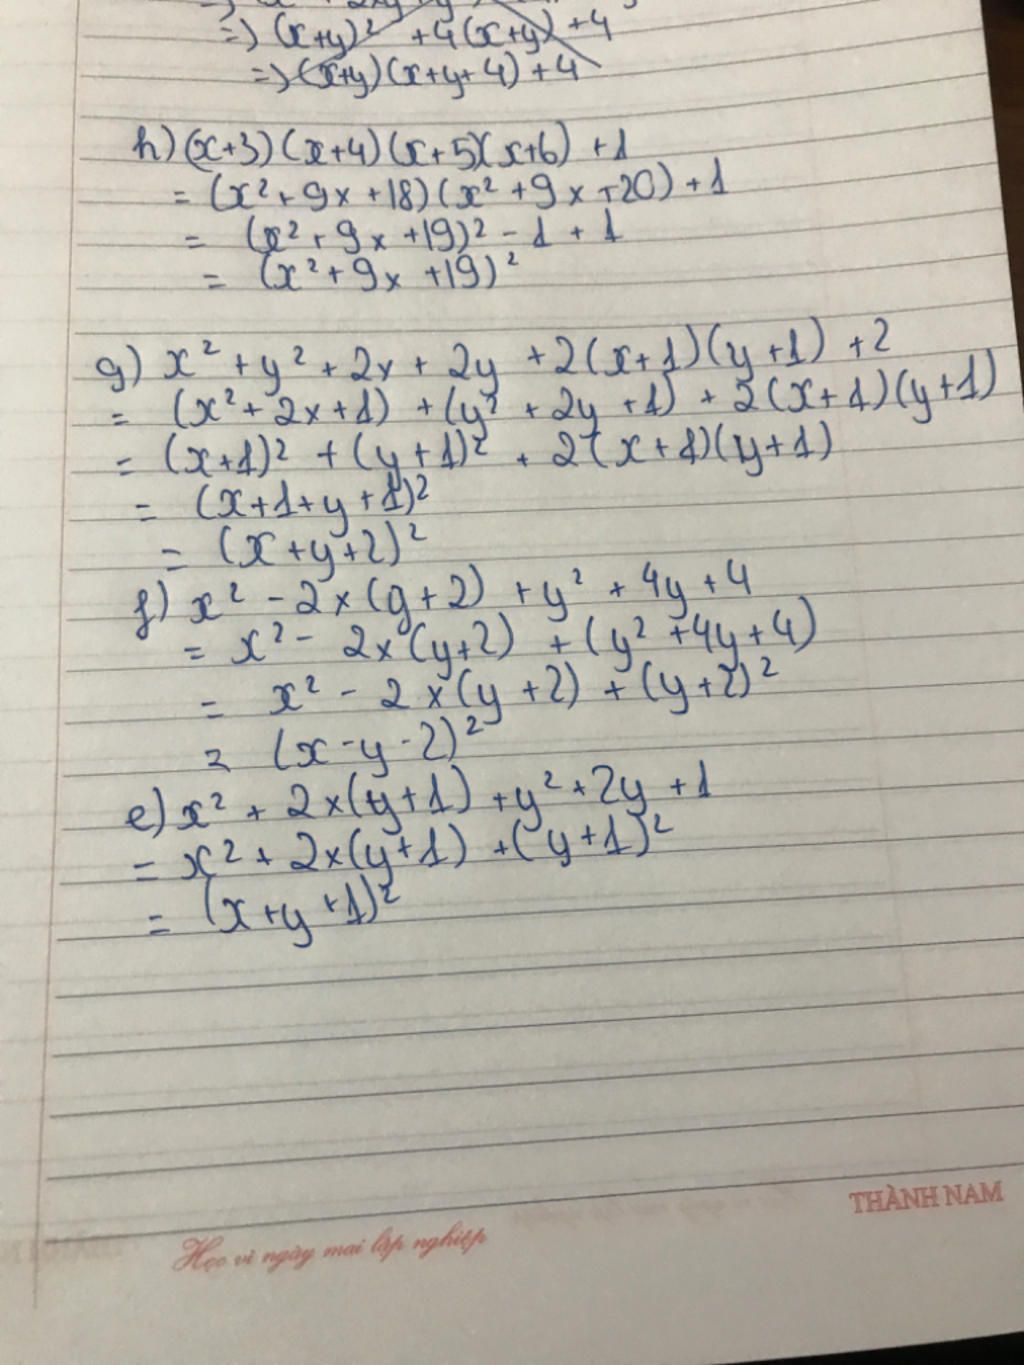 => (x+y)² + 4(x+y) + 4
=> (x+y)(x+y+4) + 4
h) (x+3)(x+4)(x+5)(x+6) + 1
= (x² + 9x + 18)(x² + 9x + 20) + 1
= (x² + 9x + 19)² - 1 + 1
= (x² + 9x + 19)²
g) x² + y² + 2x + 2y + 2(x+1)(y+1) + 2
= (x² + 2x + 1) + (y² + 2y + 1) + 2(x+1)(y+1)
= (x+1)² + (y+1)² + 2(x+1)(y+1)
= (x+1+y+1)²
= (x+y+2)²
f) x² - 2x(y+2) + y² + 4y + 4
= x² - 2x(y+2) + (y² + 4y + 4)
= x² - 2x(y+2) + (y+2)²
= (x-y-2)²
e) x² + 2x(y+1) + y² + 2y + 1
= x² + 2x(y+1) + (y+1)²
= (x+y+1)²
THÀNH NAM
Học vì ngày mai lập nghiệp